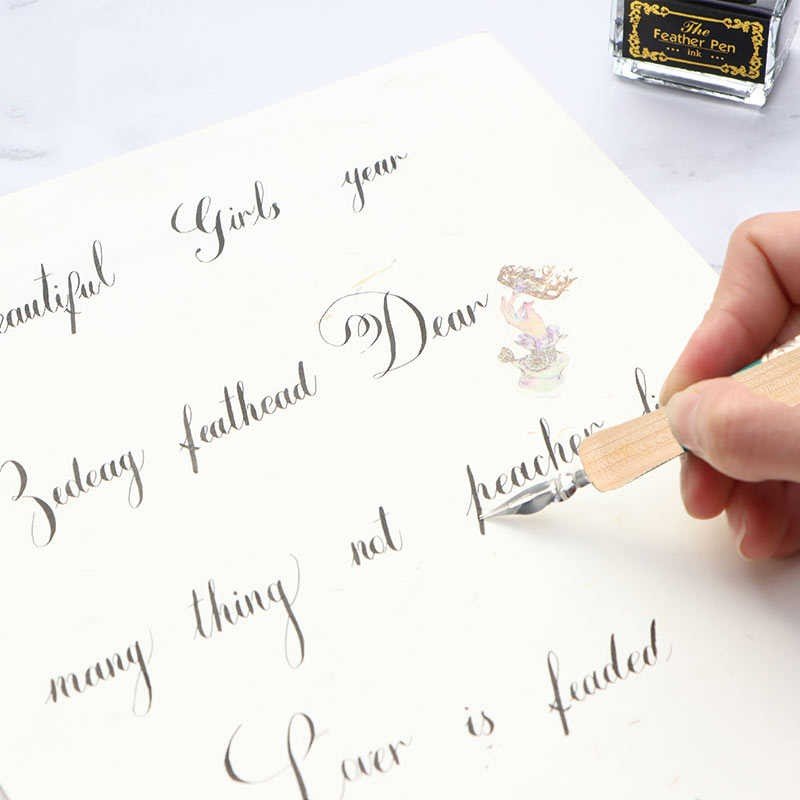 The
Feather Pen
ink
eautiful Girls year
Zedeag feathead Dear
many thing not peacher
Lover is feaded